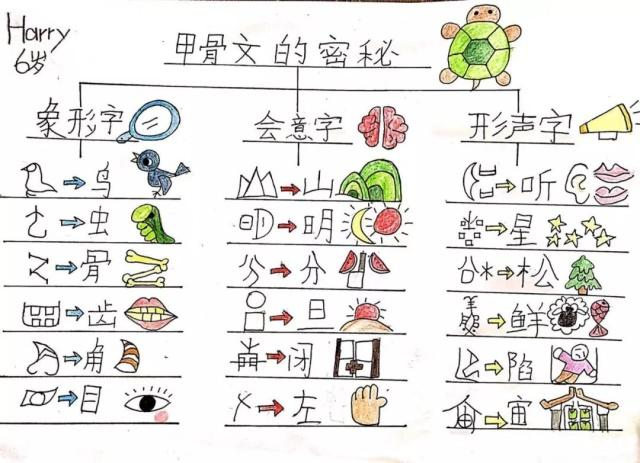 Harry
6岁
甲骨文的密秘
象形字 会意字 形声字
鸟 山 听
虫 明 星
骨 分 松
齿 旦 鲜
角 闭 陷
目 左 宙